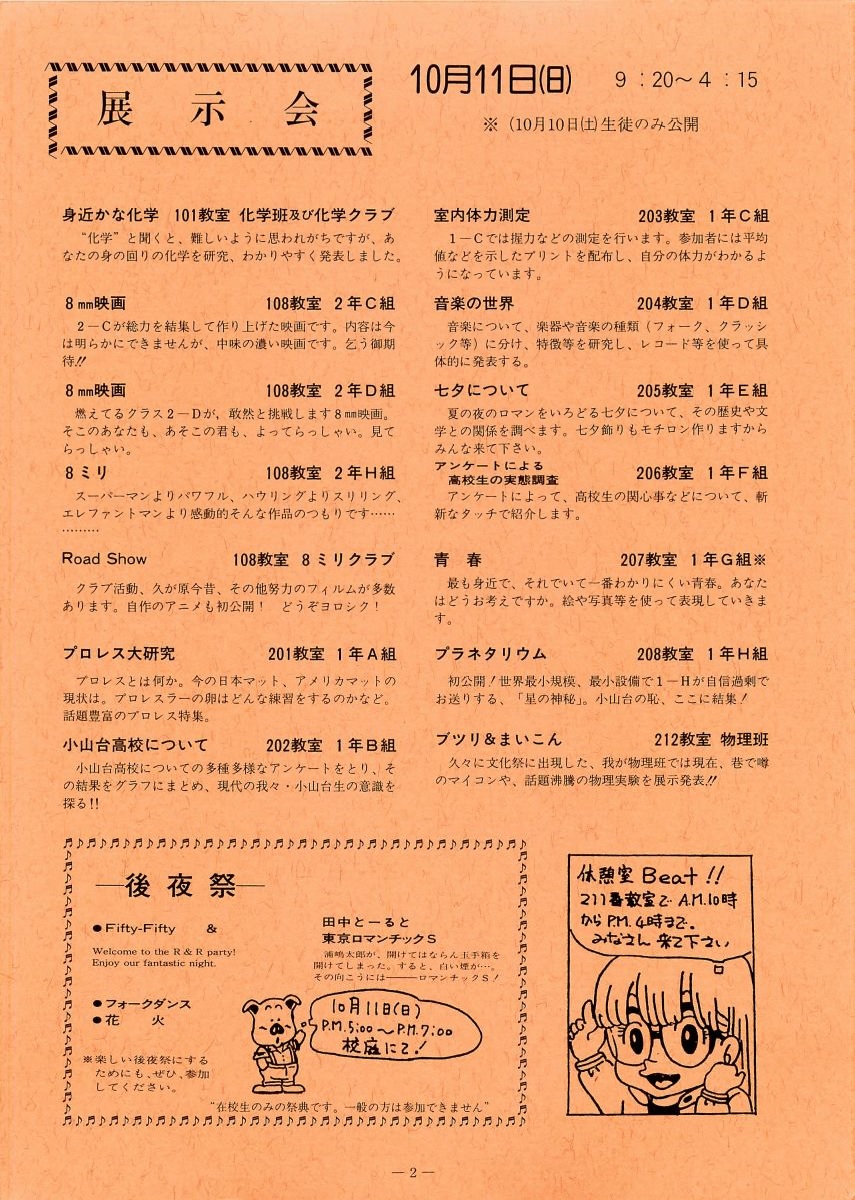 展示会
10月11日(日) 9:20～4:15
※(10月10日(土)生徒のみ公開
身近かな化学 101教室 化学班及び化学クラブ
“化学”と聞くと、難しいように思われがちですが、あ
なたの身の回りの化学を研究、わかりやすく発表しました。
8㎜映画 108教室 2年C組
2－Cが総力を結集して作り上げた映画です。内容は今
は明らかにできませんが、中味の濃い映画です。乞う御期
待!!
8㎜映画 108教室 2年D組
燃えてるクラス2－Dが、敢然と挑戦します8㎜映画。
そこのあなたも、あそこの君も、よってらっしゃい。見て
らっしゃい。
8ミリ 108教室 2年H組
スーパーマンよりパワフル、ハウリングよりスリリング、
エレファントマンより感動的そんな作品のつもりです……
………
Road Show 108教室 8ミリクラブ
クラブ活動、久が原今昔、その他努力のフィルムが多数
あります。自作のアニメも初公開！ どうぞヨロシク！
プロレス大研究 201教室 1年A組
プロレスとは何か。今の日本マット、アメリカマットの
現状は。プロレスラーの卵はどんな練習をするのかなど。
話題豊富のプロレス特集。
小山台高校について 202教室 1年B組
小山台高校についての多種多様なアンケートをとり、そ
の結果をグラフにまとめ、現代の我々・小山台生の意識を
探る!!
室内体力測定 203教室 1年C組
1－Cでは握力などの測定を行います。参加者には平均
値などを示したプリントを配布し、自分の体力がわかるよ
うになっています。
音楽の世界 204教室 1年D組
音楽について、楽器や音楽の種類（フォーク、クラッシ
ック等）に分け、特徴等を研究し、レコード等を使って具
体的に発表する。
七夕について 205教室 1年E組
夏の夜のロマンをいろどる七夕について、その歴史や文
学との関係を調べます。七夕飾りもモチロン作りますから
みんな来て下さい。
アンケートによる
高校生の実態調査 206教室 1年F組
アンケートによって、高校生の関心事などについて、斬
新なタッチで紹介します。
青春 207教室 1年G組※
最も身近で、それでいて一番わかりにくい青春。あなた
はどうお考えですか。絵や写真等を使って表現していきま
す。
プラネタリウム 208教室 1年H組
初公開！世界最小規模、最小設備で1－Hが自信過剰で
お送りする、「星の神秘」。小山台の恥、ここに結集！
ブツリ&まいこん 212教室 物理班
久々に文化祭に出現した、我が物理班では現在、巷で噂
のマイコンや、話題沸騰の物理実験を展示発表!!
―後夜祭―
●Fifty-Fifty &
Welcome to the R & R party!
Enjoy our fantastic night.
田中とーると
東京ロマンチックS
浦嶋太郎が、開けてはならん玉手箱を
開けてしまった。すると、白い煙が…。
その向こうには―――ロマンチックS！
●フォークダンス
●花火
※楽しい後夜祭にする
ためにも、ぜひ、参加
してください。
10月11日(日)
P.M.5:00～P.M.7:00
校庭にて！
“在校生のみの祭典です。一般の方は参加できません”
休憩室 Beat!!
211番教室で A.M.10時
から P.M.4時まで。
みなさん 来て下さい
―2―